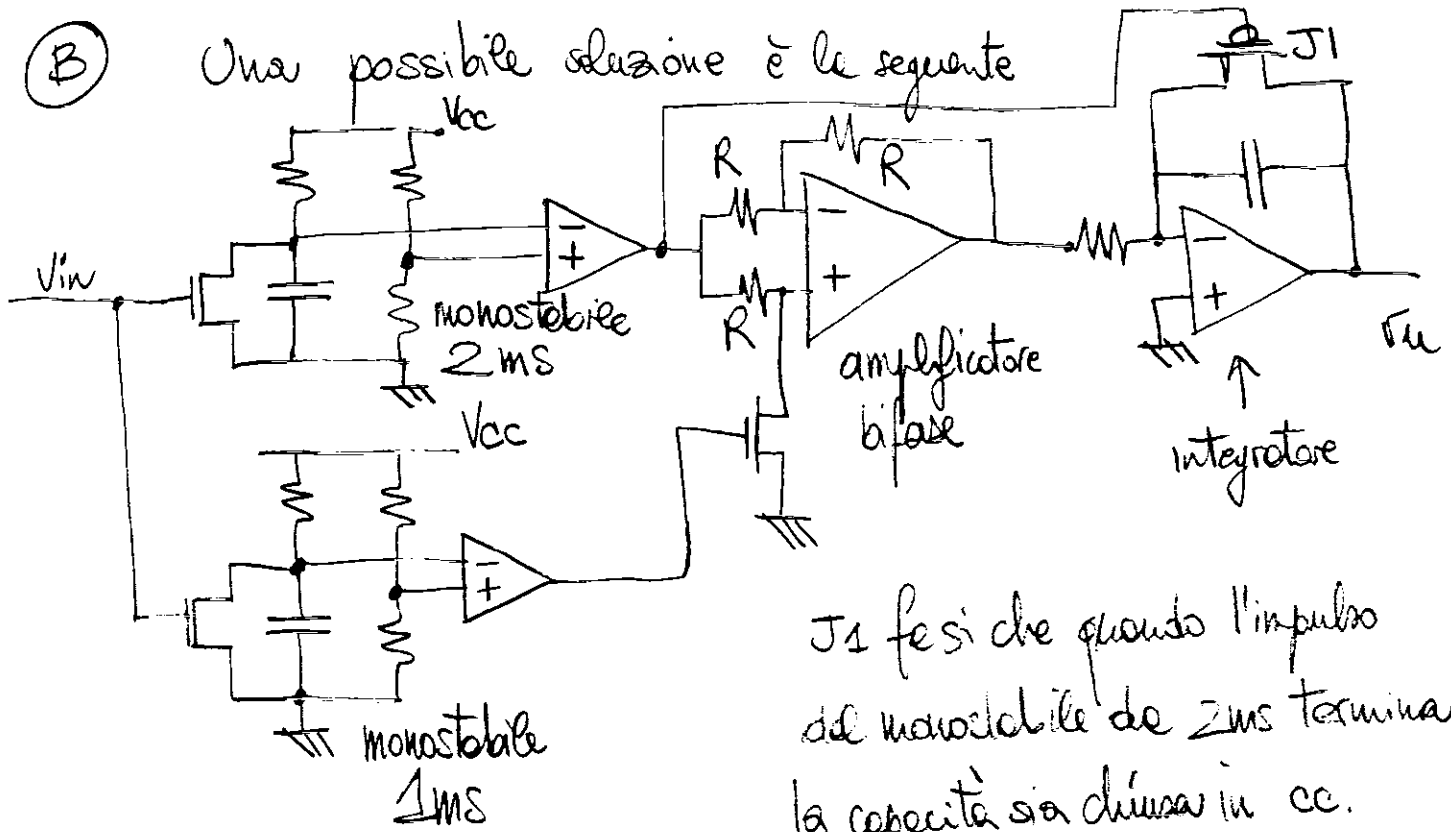 B Una possibile soluzione è la seguente
J1
Vcc
R
R
R
Vin
monostabile
2ms
amplificatore
bifase
vu
integratore
Vcc
monostabile
1ms
J1 fa sì che quando l'impulso
del monostabile da 2ms termina
la capacità sia chiusa in cc.
-
+
-
+
-
+
-
+